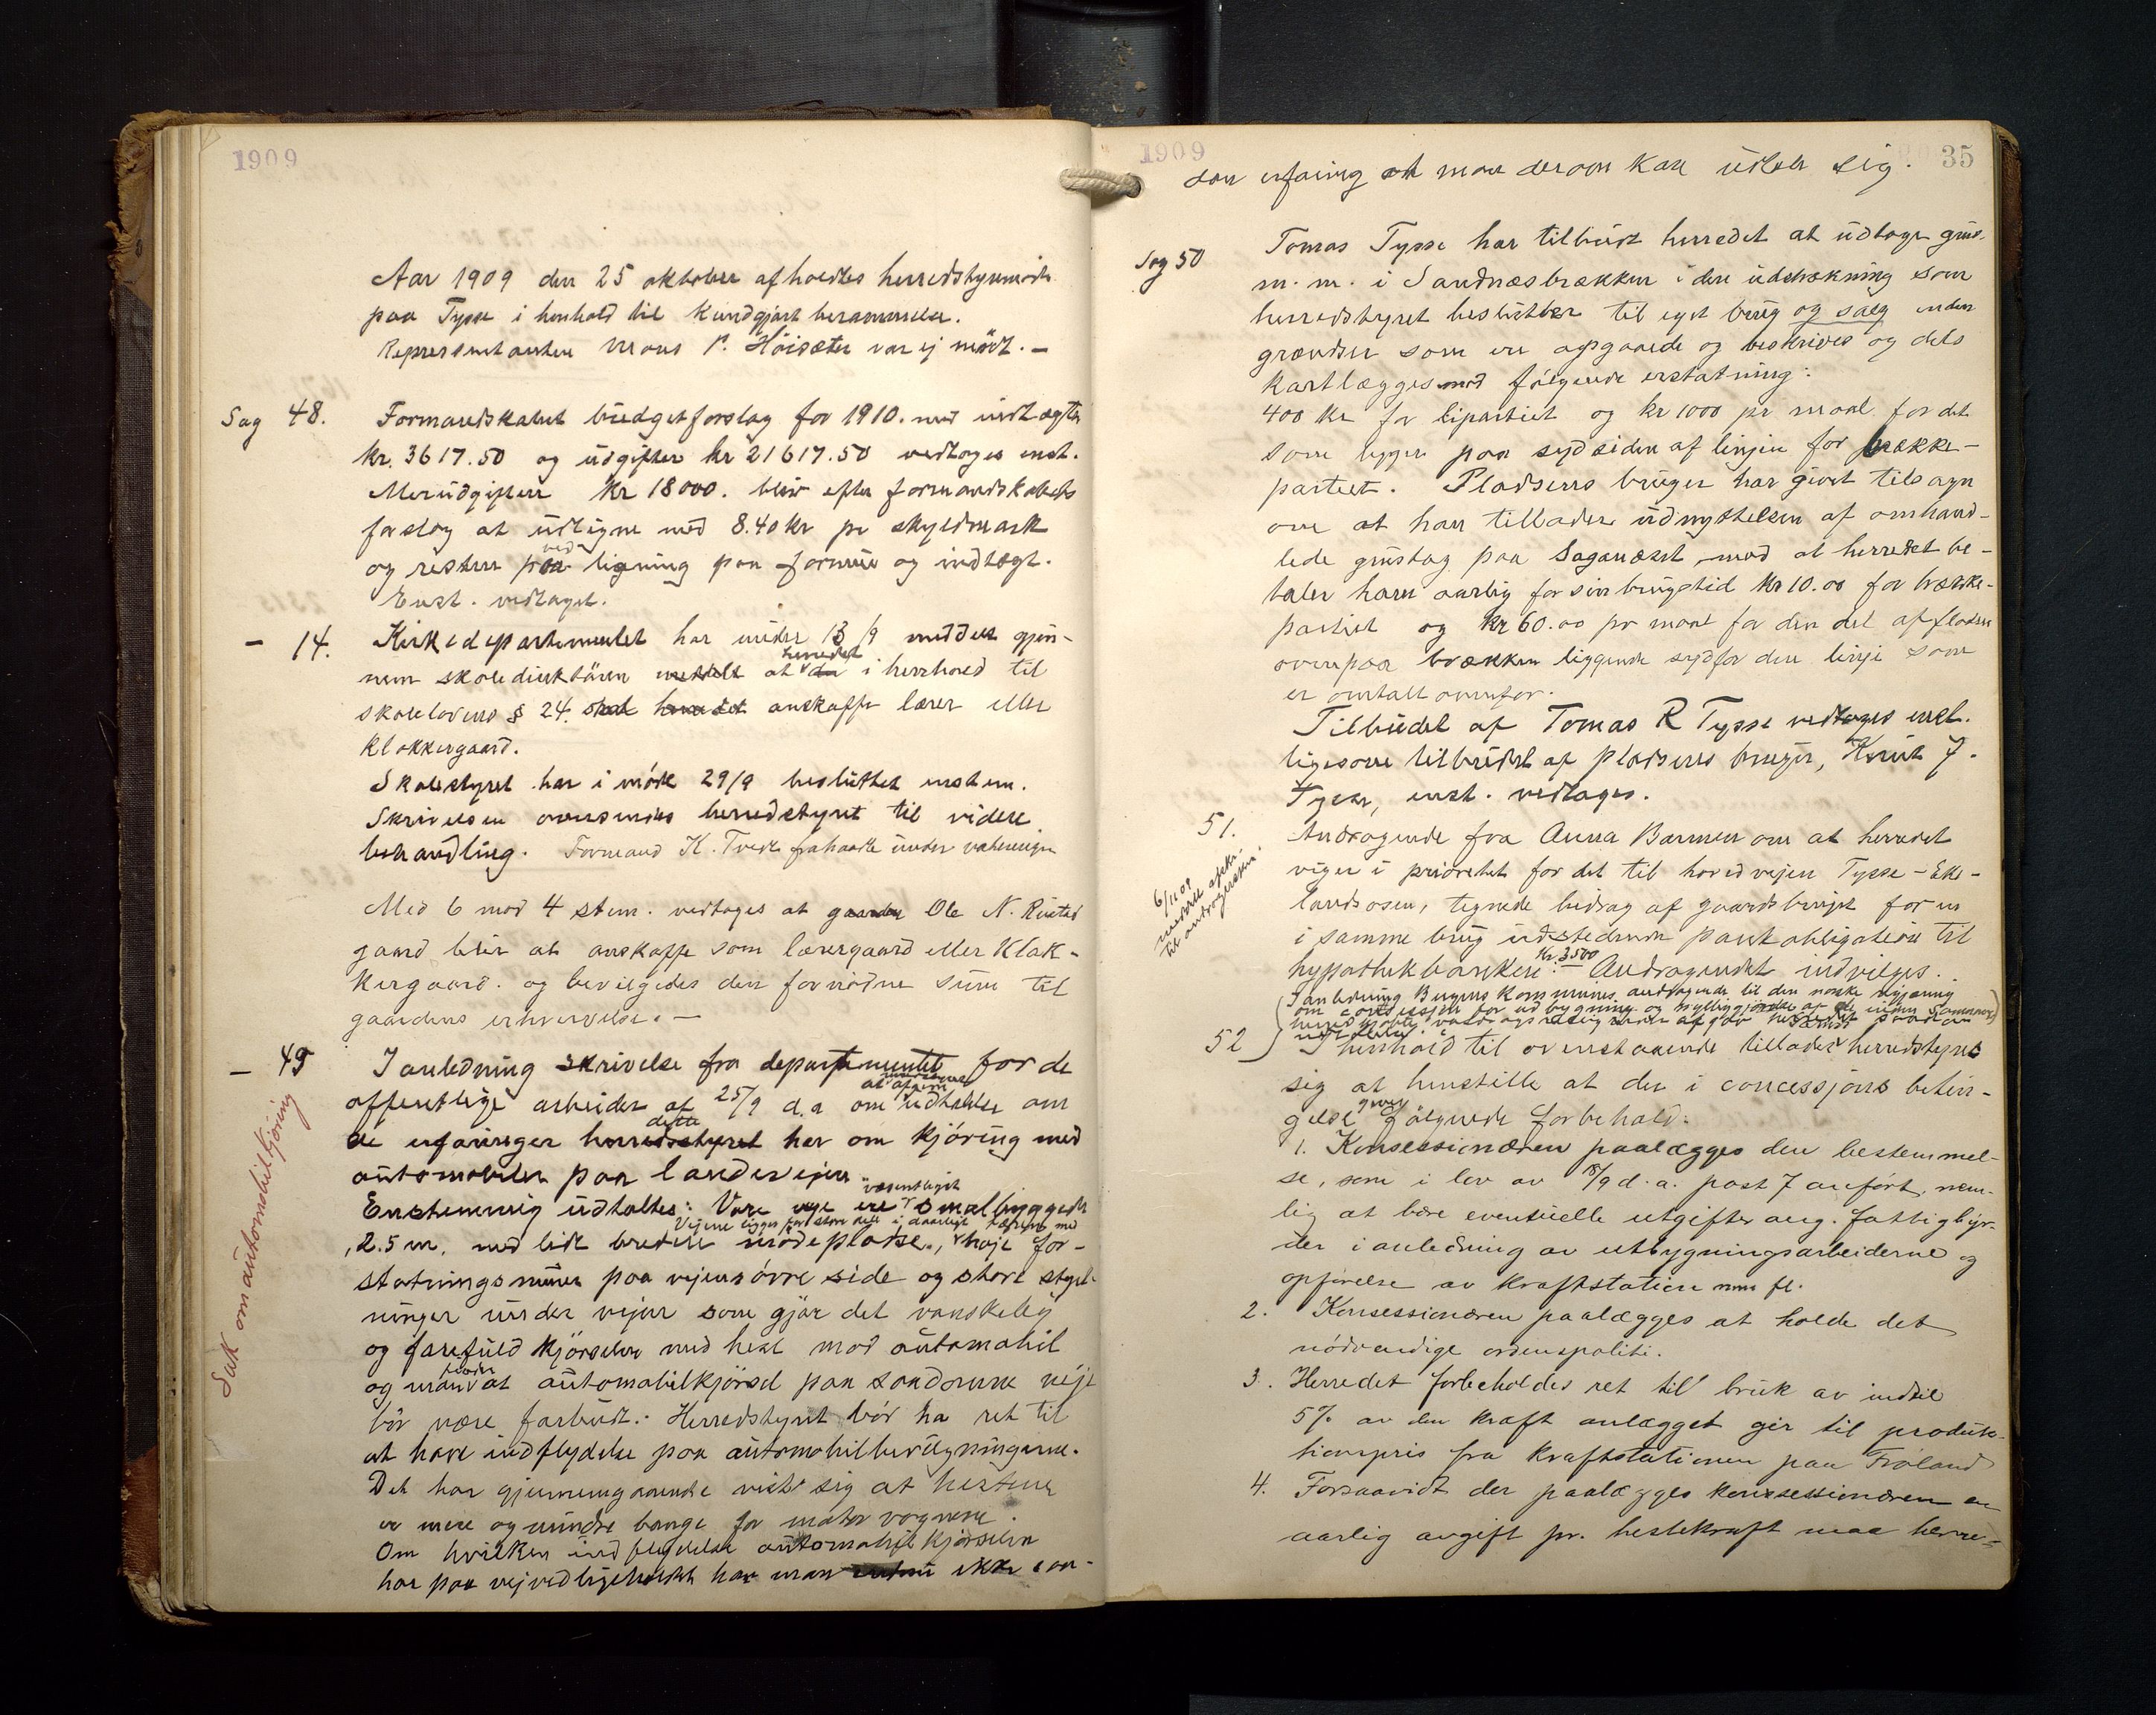 1909
Aar 1909 den 25 oktober afholdtes herredstyremöde
paa Tysse i henhold til kundgjort berammelse.
Representanten Mons P. Höisæter var ej mödt. –
Sag 48. Formandskabet budgetforslag for 1910. med indtægter
kr. 3617.50 og udgifter kr 21617.50 vedtoges enst.
Merudgiften kr 18000. bliv efter formandskabets
forslag at udligne med 8.40 kr pr skyldmark
og resten paa ved ligning paa formue og indtægt.
Enst. vedtaget.
– 14. Kirkedepartementet har under 13/9 meddelt gjen-
nem skoledirektören meddelt at den herredet i henhold til
skolelovens § 24. skal herredet anskaffe lærer eller
klokkergaard.
Skolestyret har i möde 29/9 besluttet enstem.
Skrivelsen oversendes herredstyret til videre
behandling. Formand K. Tveit frahaade under voteringen
Med 6 mod 4 stem. vedtages at gaarden Ole N. Rivted
gaard blir at anskaffe som lærergaard eller Klok-
kergaard. og bevilgedes den fornödne sum til
gaardens erhvervelse. –
– 49 I anledning skrivelse fra departementet for de
offentlige arbeider af 25/9 d.a om at afgive udtalelse om
de erfaringer herredstyret dette har om kjöring med
automobiler paa landeveien
Enstemmig udtaltes: Vore veje ere væsentligst smalbyggede
, 2.5 m. med lidt bredere mödeplodse., Vejene ligger for stor del i daarligt terræn med höje for-
stötningsmurer paa vejens övre side og store styrt-
ninger under vejen som gjör det vanskelig
og farefuld kjörselen med hest mod automobil
og man holder at automobilkjörsel paa saadanne veje
bör være forbudt. Herredstyret bör ha ret til
at have indflydelse paa automobilbevilgningerne.
Det har gjennemgaaende vist sig at hestene
er mere og mindre bange for motor vognene.
Om hvilken indflydelse automobilkjörselen
har paa vejvedligeholdet har man endnu ikke saa-
Sak om automobilkjöring
1909 35
dan erfaring at man derom kan udtale sig.
Sag 50 Tomas Tysse har tilbudt herredet at udtage grus
m. m. i Sandnesbrækken i den udstrækning som
herredstyret beslutter til eget brug og salg inden
grændser som er opgaaede og beskrives og dets
kartlægges mod fölgende erstatning:
400 kr for lipartiet og kr 1000 pr maal for det
som ligger paa sydsiden af linjen for brække-
partiet. Pladsens bruger har givet tilsagn
om at han tillader udnyttelsen af omhand-
lede grustag paa Saganæset mod at herredet be-
taler ham aarlig for sin brugstid kr 10.00 for brække-
partiet og kr 60.00 pr maal for den del af fladen
ovenpaa brækken liggende sydfor den linje som
er omtalt ovenfor.
Tilbudet af Tomas R Tysse vedtoges enst.
ligesom tilbudet af pladsens bruger, Knut J.
Tysse, enst. vedtages.
51. Andragende fra Anna Barmen om at herredet
viger i prioritet for det til hovedvejen Tysse – Eke-
landsosen, tegnede bidrag af gaardsbruget for en
i samme brug udstedende pantobligation til
hypothekbanken kr. 3500 – Andragendet indvilges.
6/11 09
meddelt afskr.
til andragerinden.
(I anledning Bergens kommunes andragende til den norske regjering
om concession for udbygning og nyttiggjörelse af de inden Samnanger
herred hörende vasdrag
52 I henhold til ovenstaaende tillader herredstyret
sig at henstille at der i concessjons betin-
gelse gives fölgende forbehold:
1. Konsessionæren paalægges den bestemmel-
se, som i lov av 18/9 d.a. post 7 anfört, nem-
lig at bære eventuelle utgifter ang. fattigbyr-
der i anledning av utbygningsarbeiderne og
opförelse av kraftstation m.m. fl.
2. Konsessionæren paalægges at holde det
nödvendige ordenspoliti.
3. Herredet forbeholdes ret til bruk av indtil
5% av den kraft anlægget gir til produk-
tionspris fra kraftstationen paa Fröland
4. Forsaavidt der paalægges konsessionæren en
aarlig avgift pr. hestekraft maa herre-